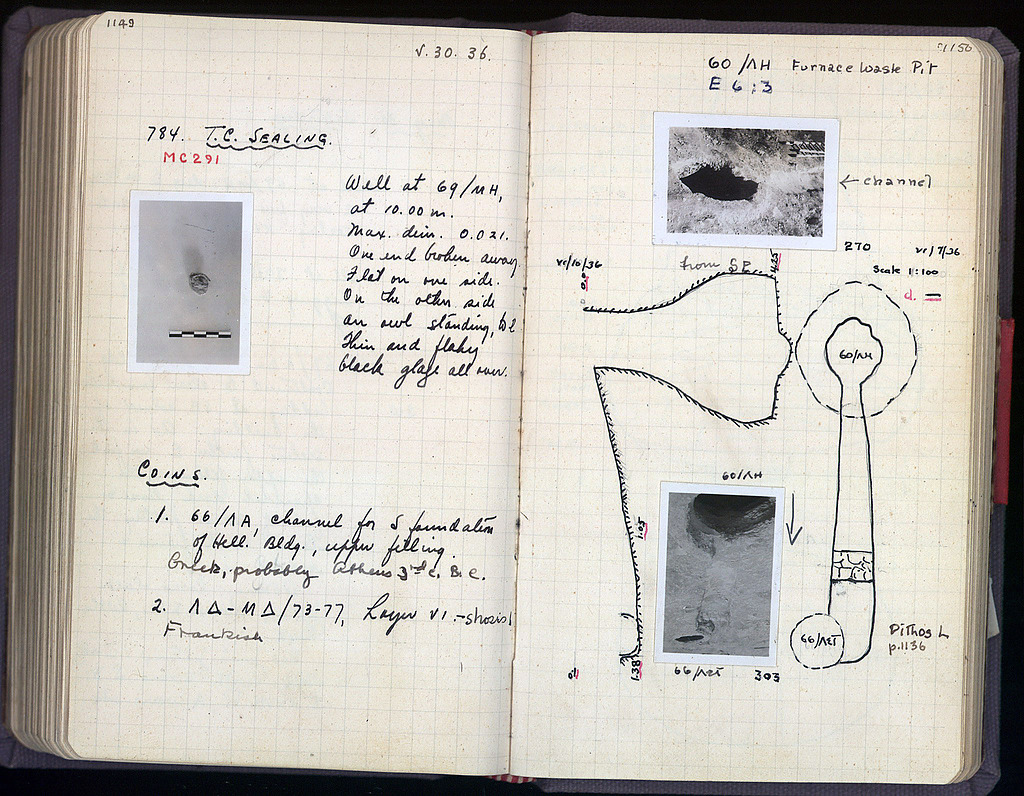 1149
V. 30. 36.
784. T.C. SEALING.
MC291
Well at 69/ΜΗ,
at 10.00 m.
Max. dim. 0.021.
One end broken away.
Flat on one side.
On the other side
an owl standing, to l.
Thin and flaky
black glaze all over.
COINS.
1. 66/ΛΑ, channel for S foundation
of Hell. Bldg., upper filling.
Greek, probably Athens 3rd c. B.C.
2. ΛΔ-ΜΔ/73-77, Layer VI.
Frankish
1150
60/ΛΗ Furnace Waste Pit
E 6:3
← channel
270
VI/7/36
VI/10/36
from SP
Scale 1:100
d.
60/ΛΗ
60/ΛΗ
66/ΛΣΤ
Pithos L
p.1136
1.38
66/ΛΣΤ
303